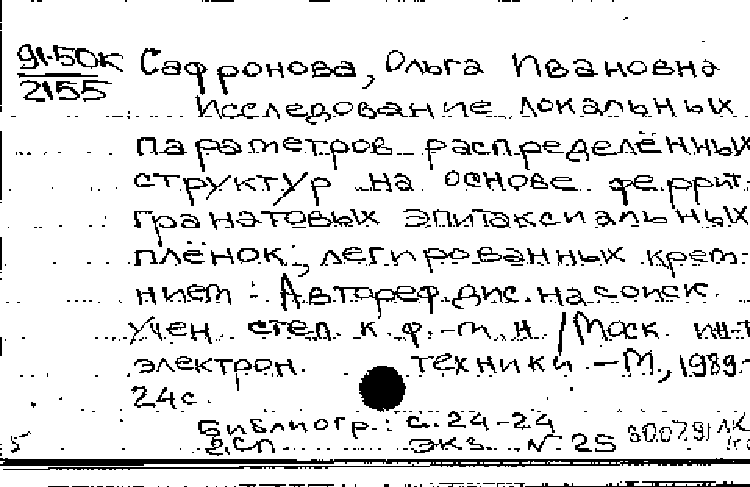 91-50К Сафронова, Ольга Ивановна
2155
Исследование локальных
параметров распределённых
структур на основе феррит-
гранатовых эпитаксиальных
плёнок, легированных крем-
нием : Автореф. дис. на соиск.
учен. степ. к. ф.-м. н. / Моск. ин-т
электрон. техники. - М., 1989.-
24 с.
Библиогр.: с. 24-24
ДСП экз. N 25